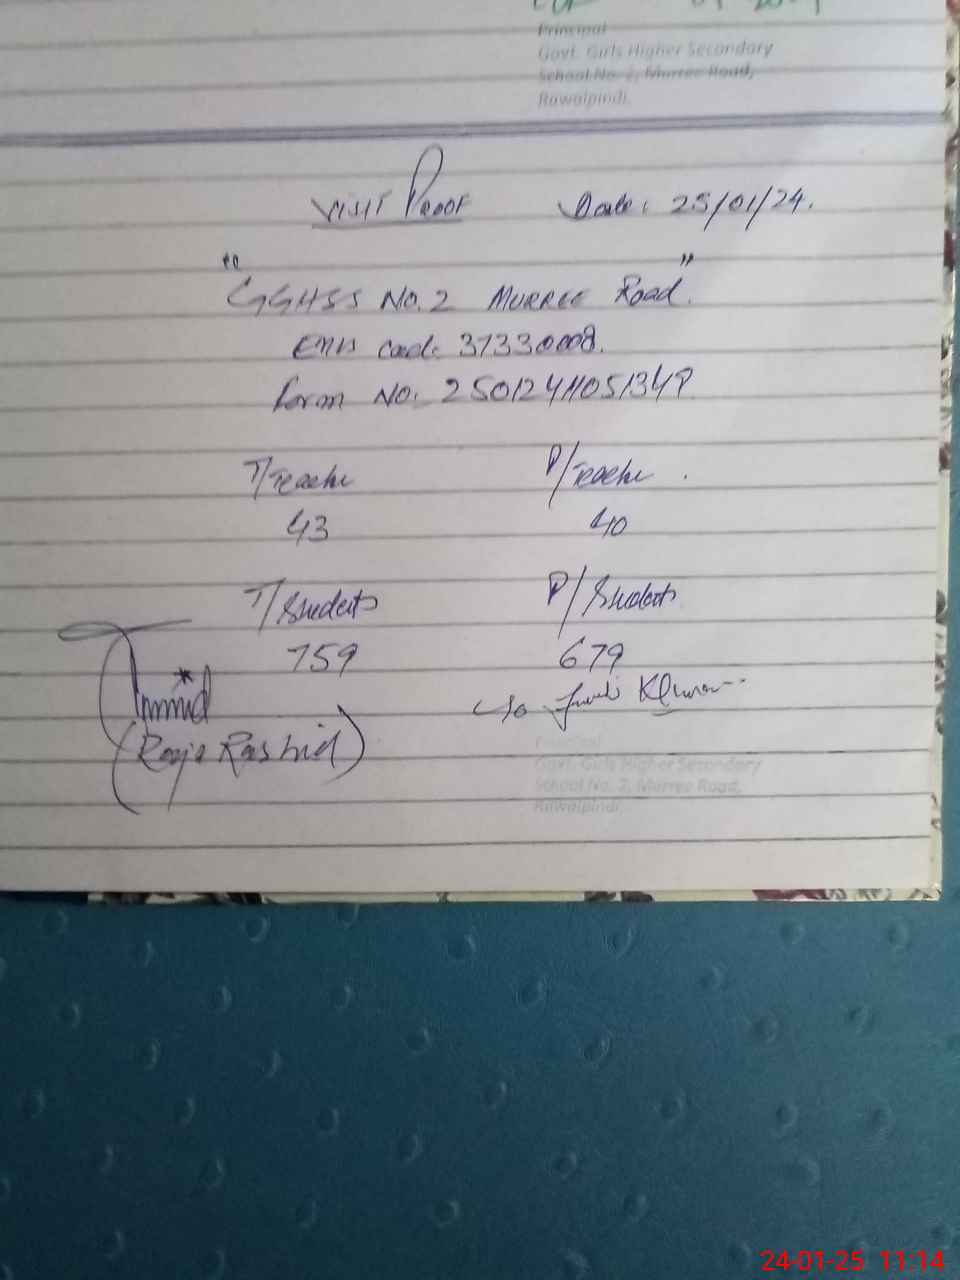 Principal
Govt. Girls Higher Secondary
School No. 2, Murree Road,
Rawalpindi.
Visit Proof Date: 25/01/24.
"GGHSS No. 2 Murree Road"
EMIS Code: 37330008.
Form No. 25012411051349
T/Teache P/Teache
43 40
T/Students P/Students
759 679
(Raja Rashid)
Principal
Govt. Girls Higher Secondary
School No. 2, Murree Road,
Rawalpindi.
24-01-25 11:14